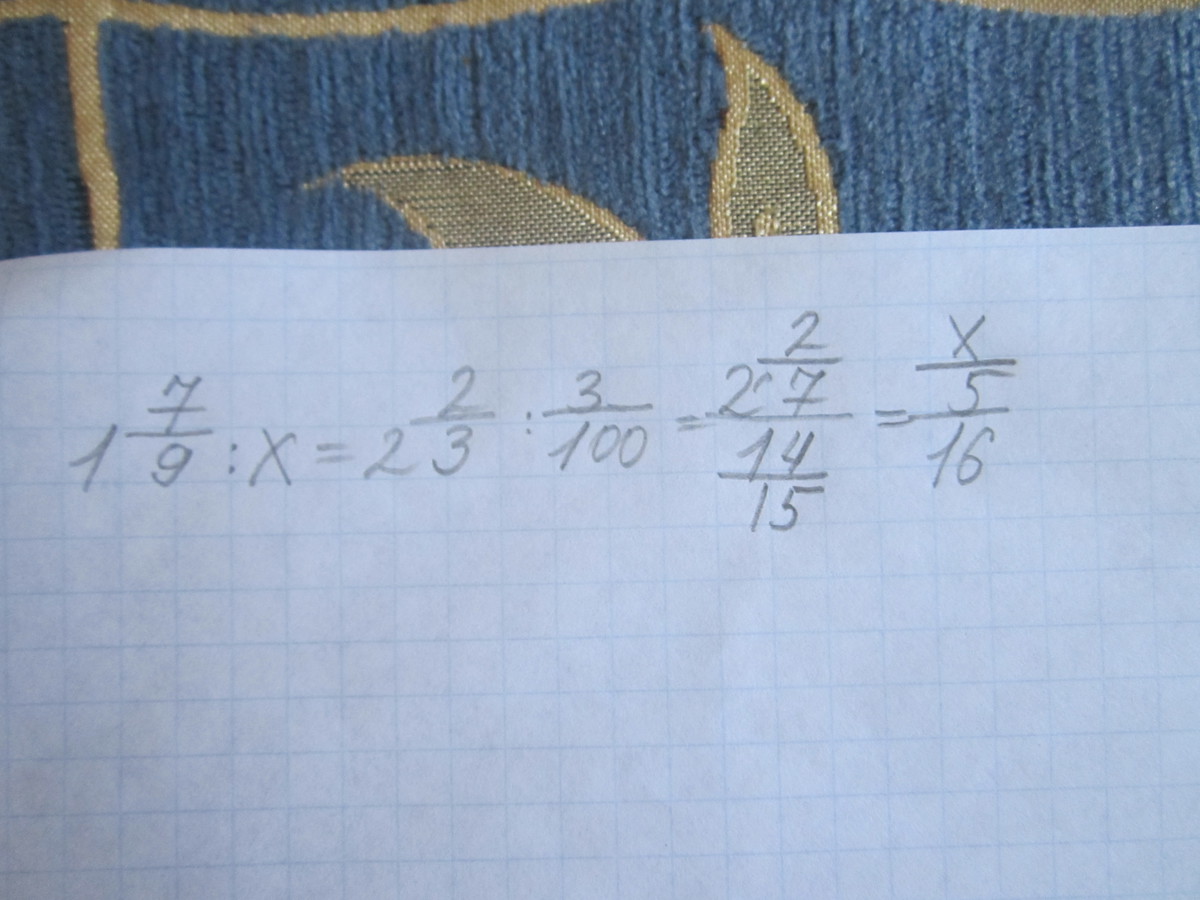 1 7/9 : x = 2 2/3 : 3/100 = (2 2/7)/(14/15) = x/(5/16)